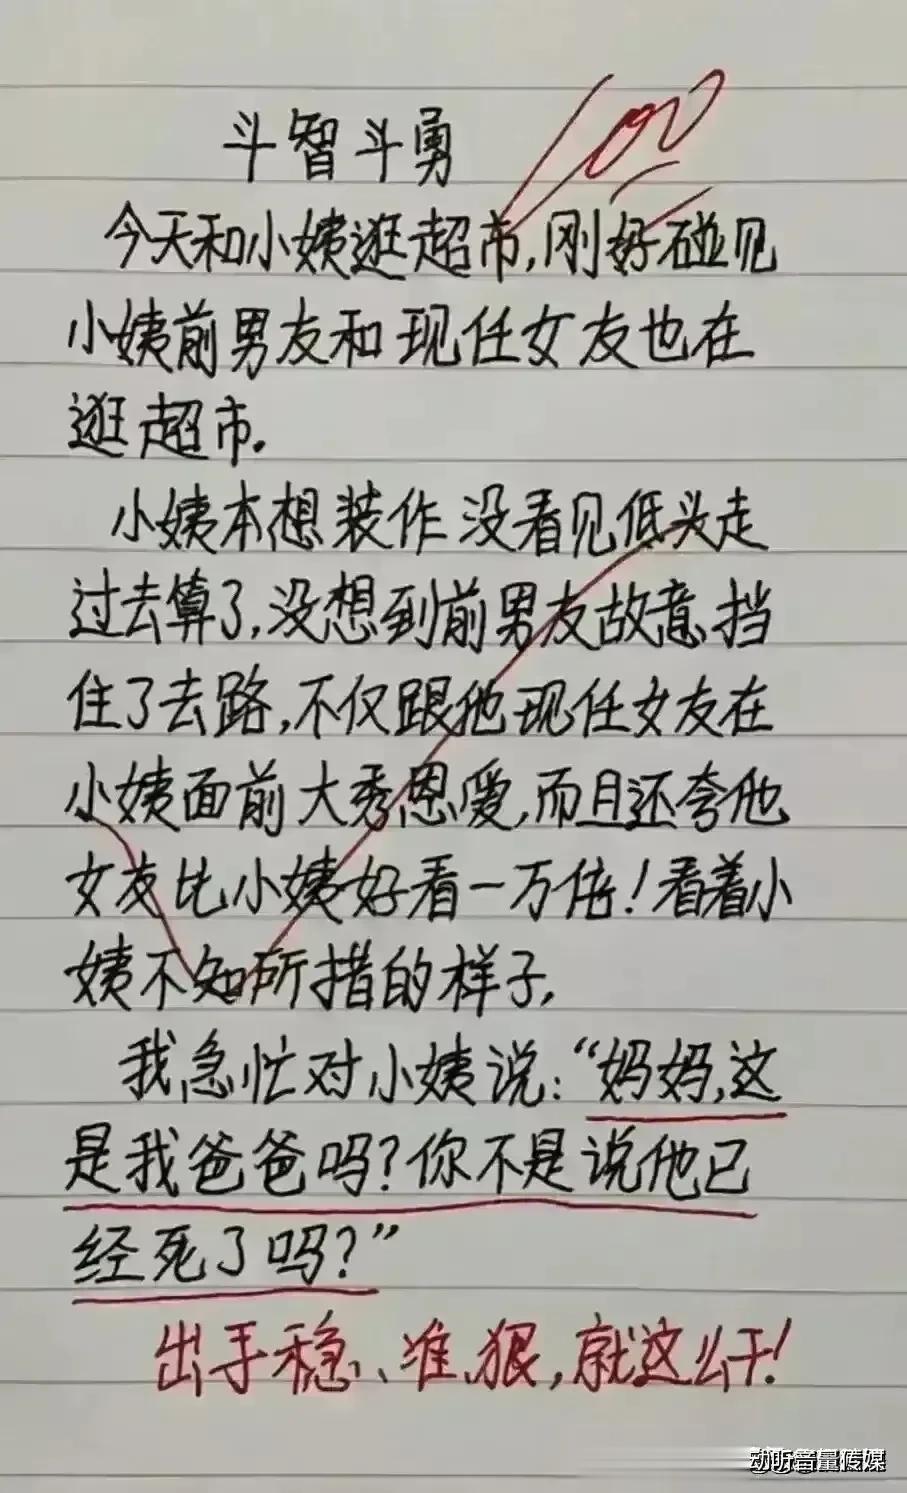 斗智斗勇
100
今天和小姨逛超市,刚好碰见
小姨前男友和现任女友也在
逛超市.
小姨本想装作没看见低头走
过去算了,没想到前男友故意挡
住了去路,不仅跟他现任女友在
小姨面前大秀恩爱,而且还夸他
女友比小姨好看一万倍!看着小
姨不知所措的样子,
我急忙对小姨说:“妈妈,这
是我爸爸吗?你不是说他已
经死了吗?”
出手稳、准、狠,就这么干!
动听音量传媒